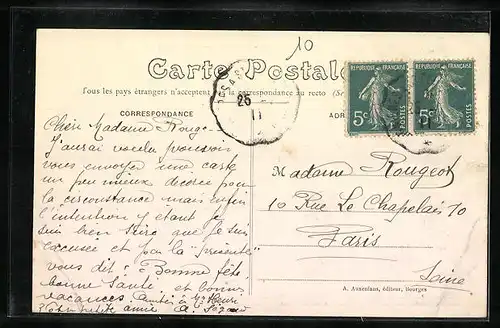 10
Carte Postale
Tous les pays étrangers n'acceptent pas la correspondance au recto
CORRESPONDANCE
25
11
RÉPUBLIQUE FRANÇAISE
5c
POSTES
RÉPUBLIQUE FRANÇAISE
5c
POSTES
Chère Madame Rouge-
J'aurai voulu pouvoir
vous envoyer une carte
un peu mieux décorée pour
la circonstance mais enfin
l'intention y étant je
suis bien sûre que je suis
excusée et par la "présente"
vous dit : Bonne fête
bonne santé et bonnes
vacances.
petite amie A.
Madame Rougeot
10 Rue Le Chapelais 10
Paris
Seine
A. Auxenfans, éditeur, Bourges